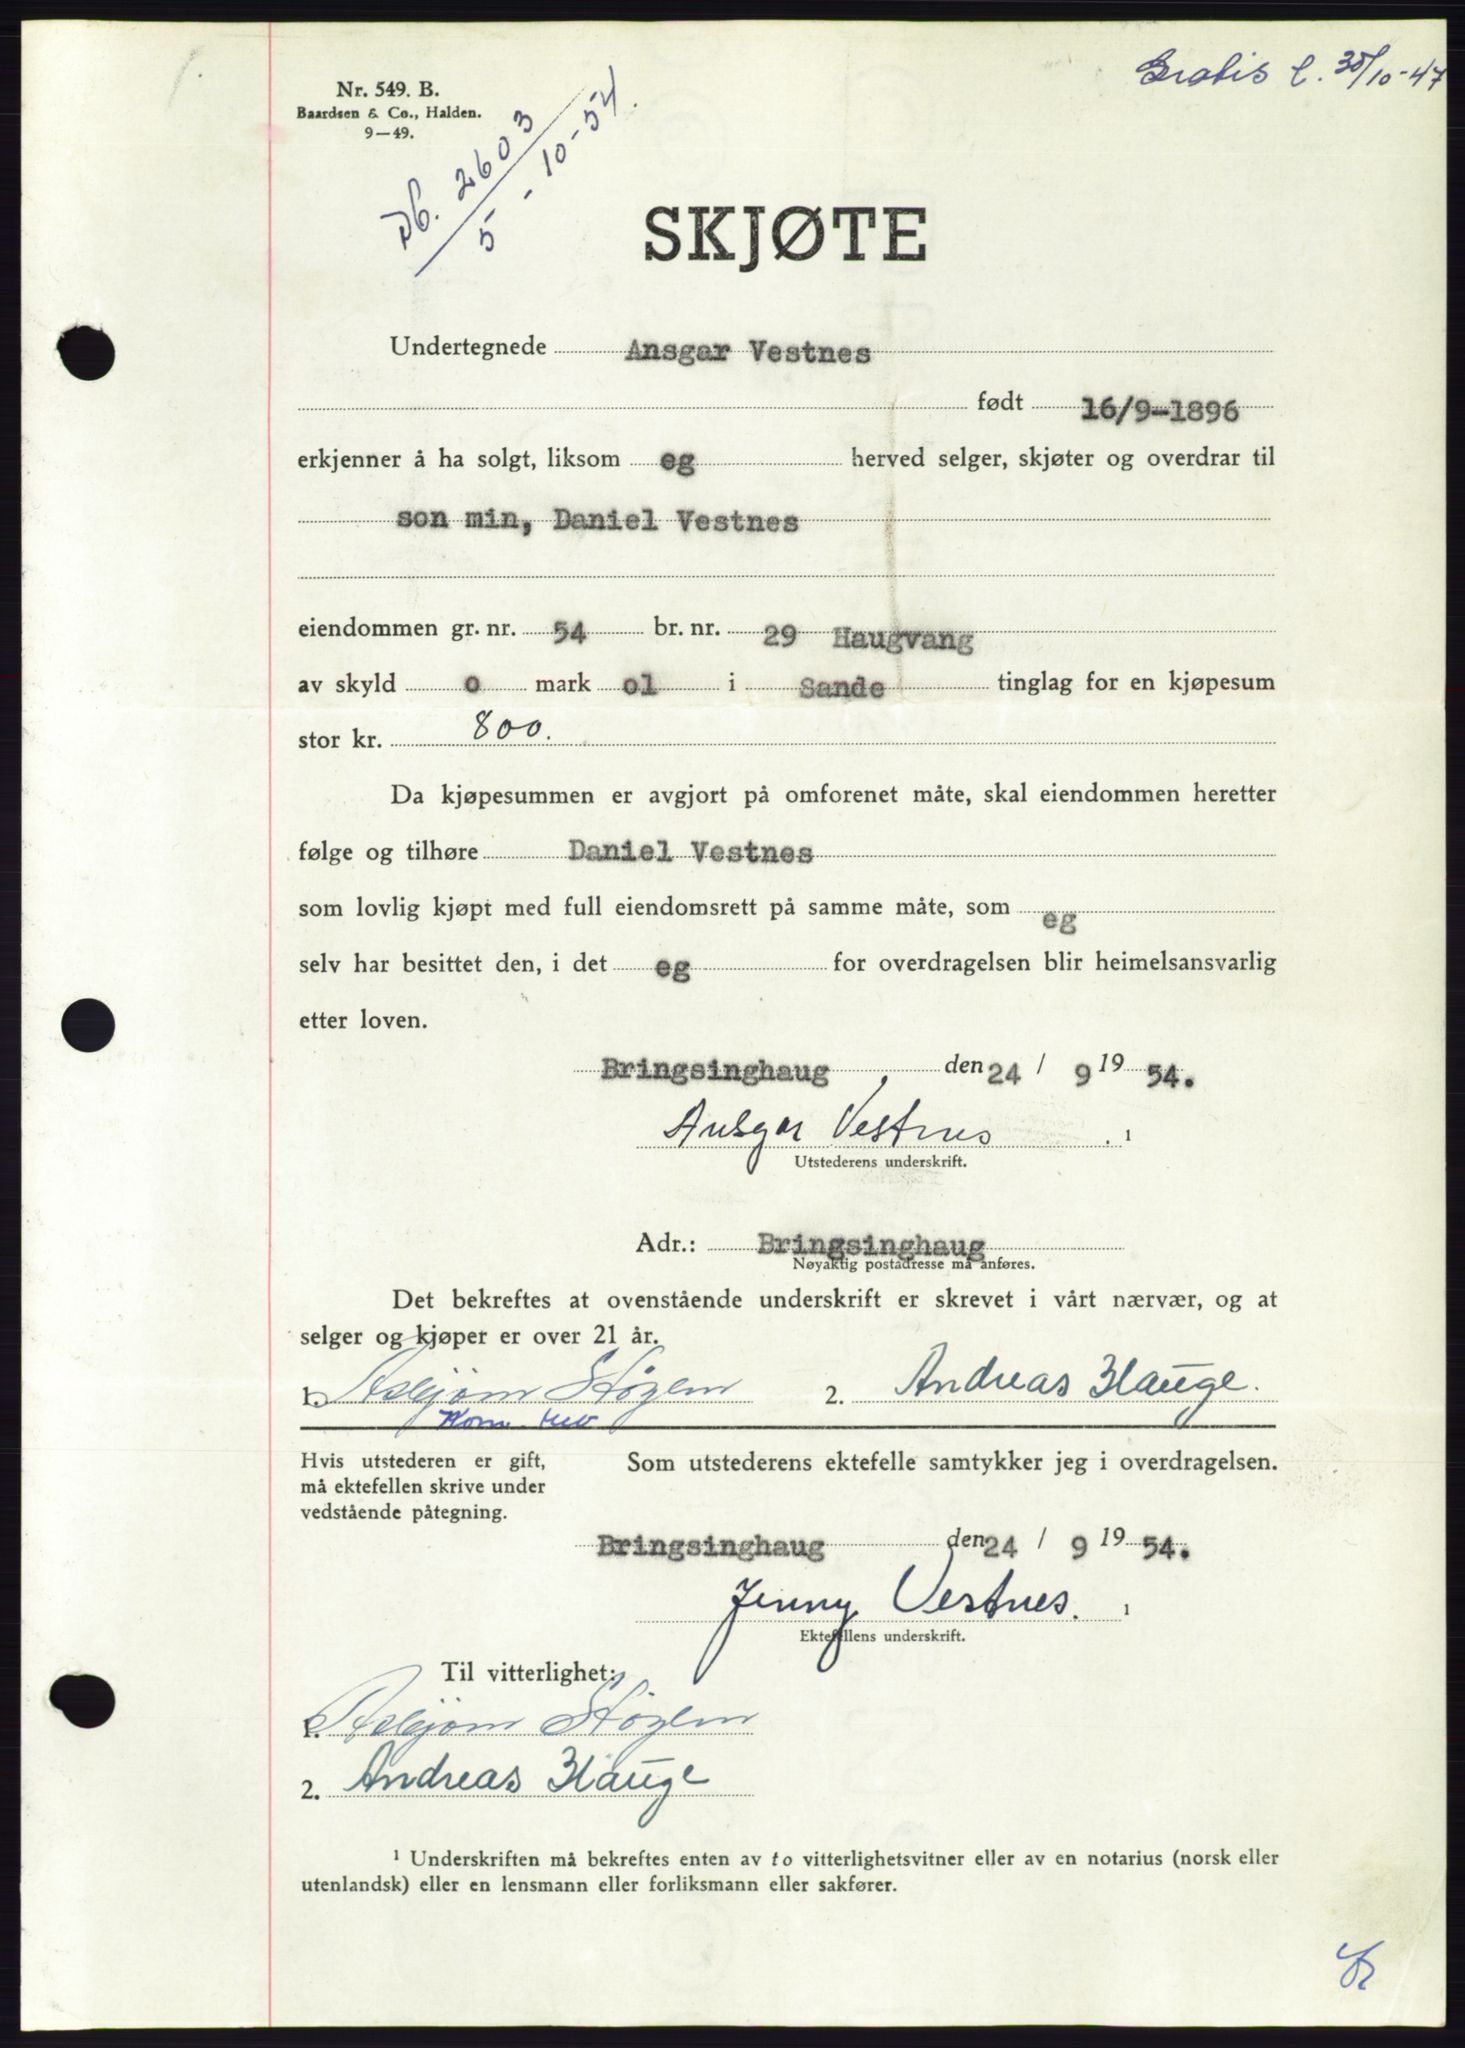 Gratis l. 30/10-47
Nr. 549. B.
Baardsen & Co., Halden.
9—49.
Db. 2603
5-10-54.
SKJØTE
Undertegnede Ansgar Vestnes
født 16/9-1896
erkjenner å ha solgt, liksom eg herved selger, skjøter og overdrar til
son min, Daniel Vestnes
eiendommen gr. nr. 54 br. nr. 29 Haugvang
av skyld o mark o1 i Sande tinglag for en kjøpesum
stor kr. 800.
Da kjøpesummen er avgjort på omforenet måte, skal eiendommen heretter
følge og tilhøre Daniel Vestnes
som lovlig kjøpt med full eiendomsrett på samme måte, som eg
selv har besittet den, i det eg for overdragelsen blir heimelsansvarlig
etter loven.
Bringsinghaug, den 24 / 9 19 54.
Ansgar Vestnes . 1
Utstederens underskrift.
Adr.: Bringsinghaug
Nøyaktig postadresse må anføres.
Det bekreftes at ovenstående underskrift er skrevet i vårt nærvær, og at
selger og kjøper er over 21 år.
1. Asbjørn Støzlen 2. Andreas Hauge.
Hvis utstederen er gift, Som utstederens ektefelle samtykker jeg i overdragelsen.
må ektefellen skrive under
vedstående påtegning.
Bringsinghaug den 24 / 9 19 54.
Jenny Vestnes. 1
Ektefellens underskrift.
Til vitterlighet:
1. Asbjørn
2. Andreas Hauge
1 Underskriften må bekreftes enten av to vitterlighetsvitner eller av en notarius (norsk eller
utenlandsk) eller en lensmann eller forliksmann eller sakfører.